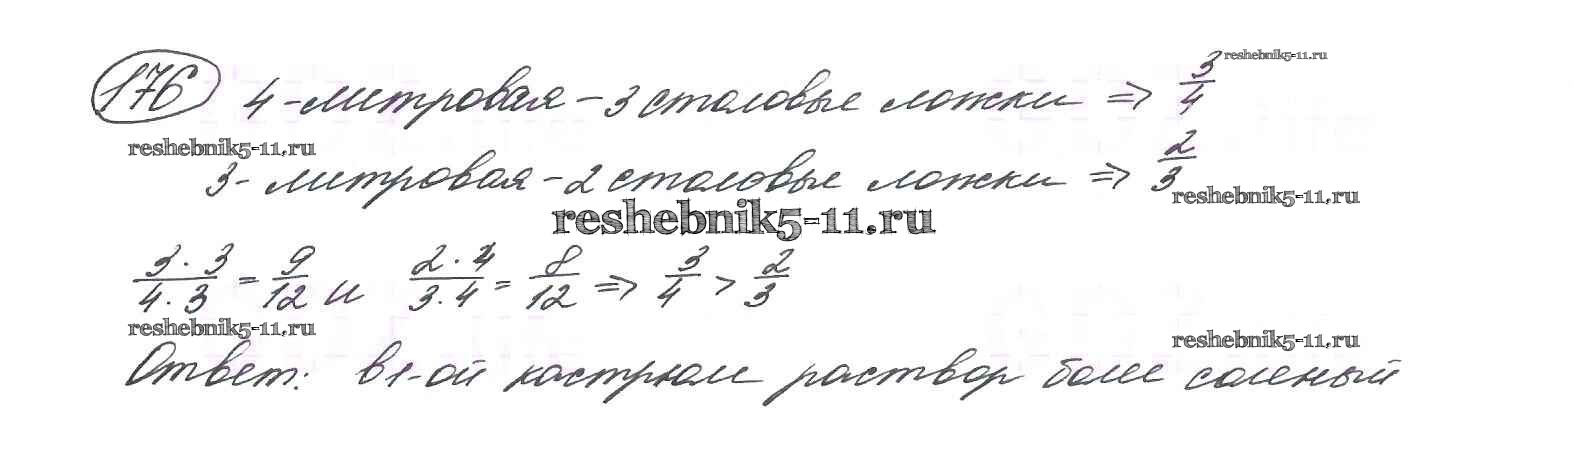 176 4-литровая - 3 столовые ложки => 3/4
reshebnik5-11.ru
reshebnik5-11.ru
3-литровая - 2 столовые ложки => 2/3
reshebnik5-11.ru
reshebnik5-11.ru
3·3/4·3 = 9/12 и 2·4/3·4 = 8/12 => 3/4 > 2/3
reshebnik5-11.ru
reshebnik5-11.ru
Ответ: в 1-ой кастрюле раствор более соленый